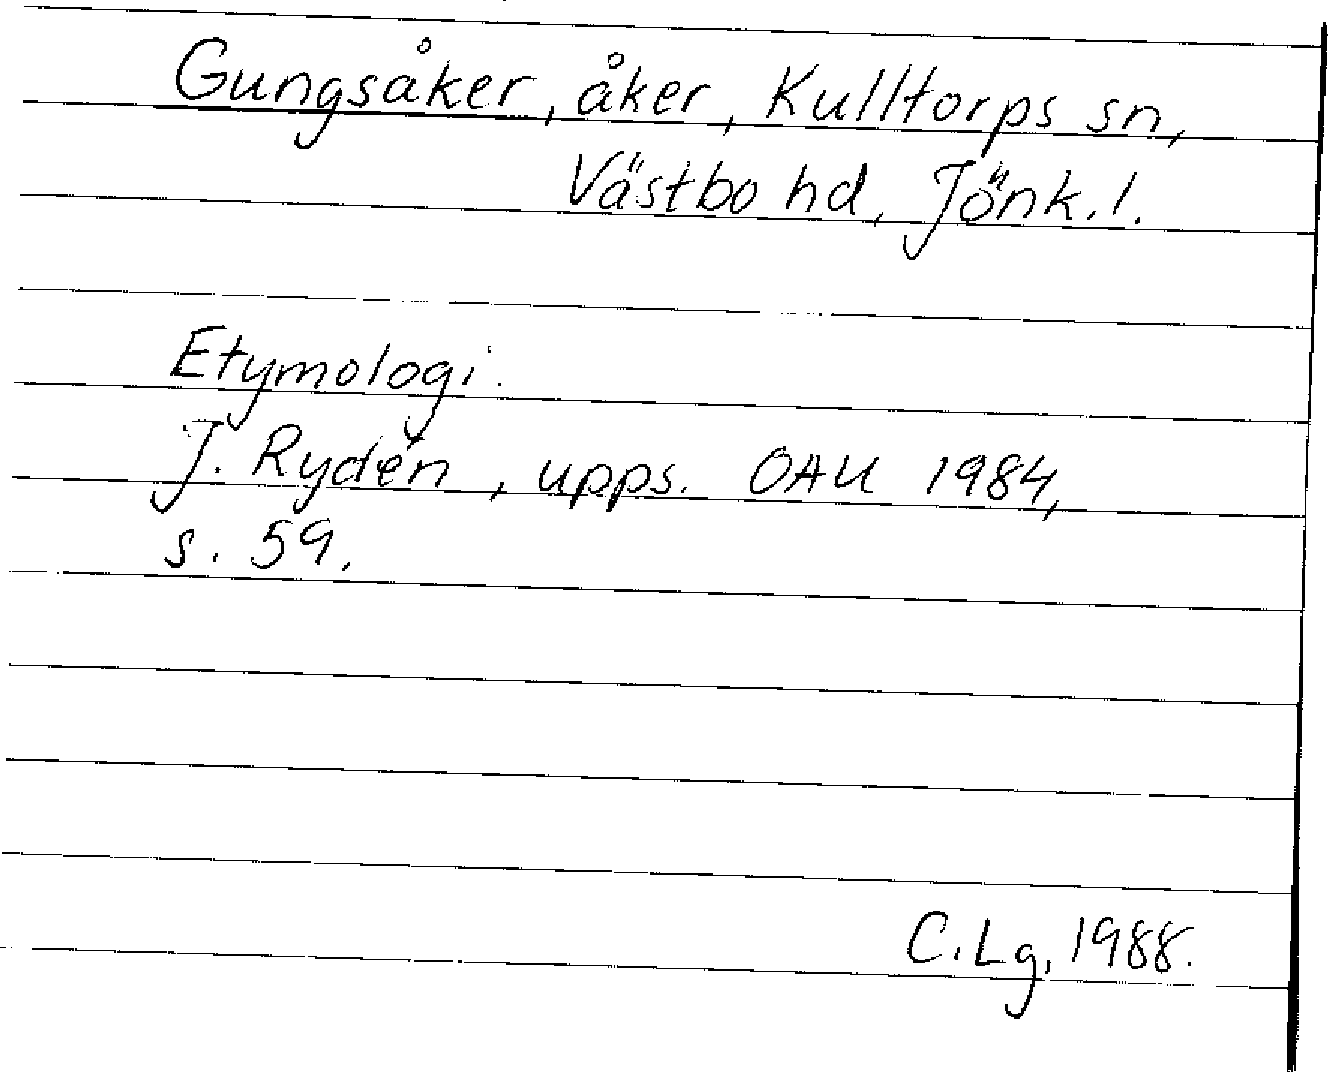 Gungsåker, åker, Kulltorps sn,
Västbo hd, Jönk. l.
Etymologi.
J. Rydén, upps. OAU 1984,
s. 59.
C. Lg, 1988.